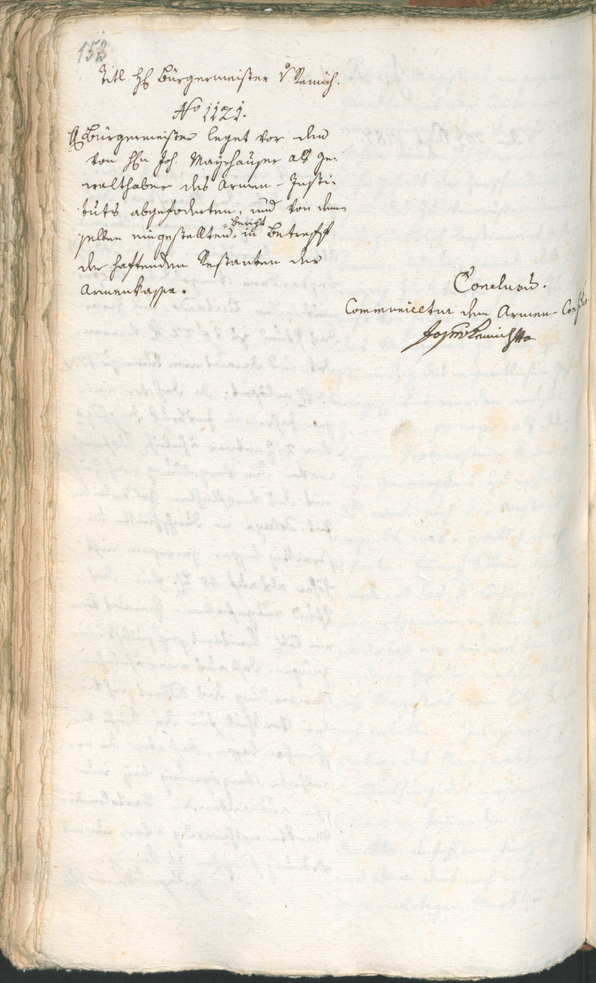 152
Titl H Bürgermeister v Remich.
No 1121.
H Bürgermeister leget vor den
von Hn Joh. Mayrhauser als Ge-
walthaber des Armen-Insti-
tuts abgeforderten, und von dem-
selben eingestellten Bericht in Betreff
der haftenden Restanten der
Armenkasse.
Conclusum.
Communicetur dem Armen-